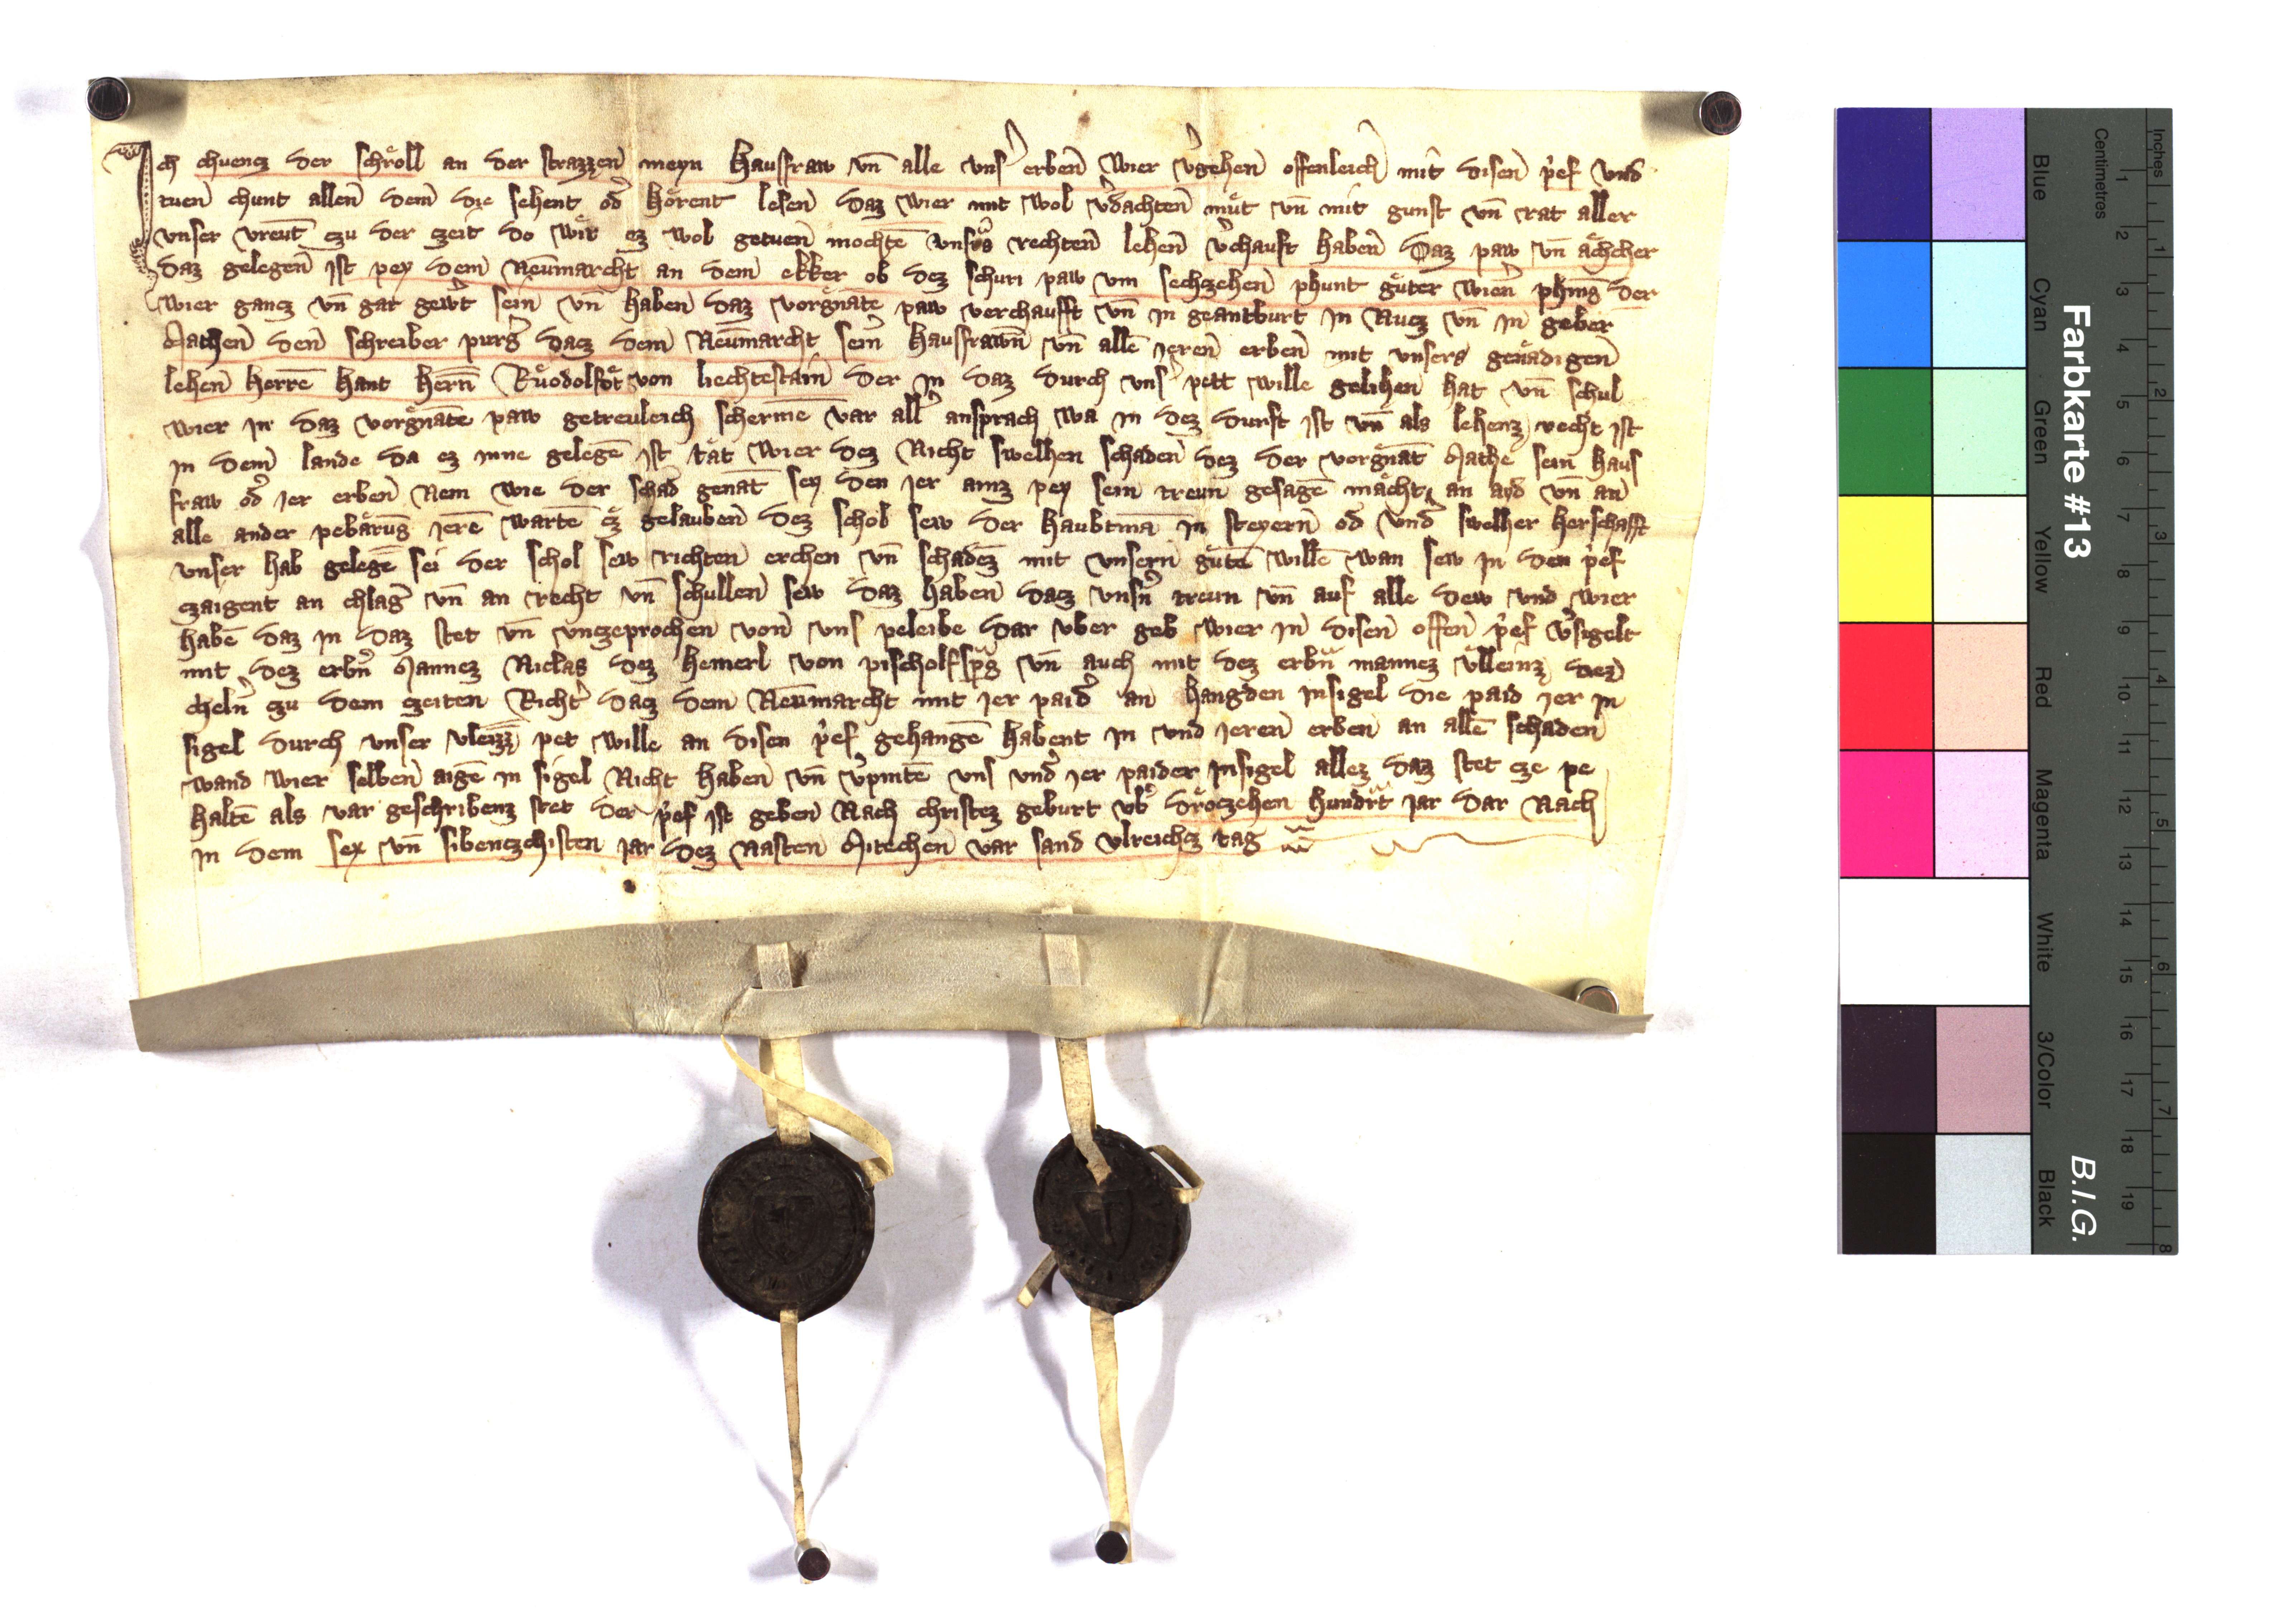 Ich chuencz der schroͤll an der strazzen meyn hausfraw vn̄ alle vnsˀ erben Wier vˀgehen offenleich mit disen pˀef vnd
tuen chunt allen dem die sehent odˀ hoͤrent lesen daz wier mit wol vˀdachten muͤt vn̄ mit gunst vn̄ rat aller
vnser vreūt czu der czeit do wir ez wol getuen mochtē vnsˀs rechten lehen vˀchauft haben Daz paw vn̄ aͤchcher
daz gelegen ist pey dem Neūmarcht an dem ekker ob dez schuri paw vm sechczehen phunt guͤter wienˀ phinḡ der
wier gancz vn̄ gar gewˀt sein vn̄ haben daz vorgn̄ate paw verchaufft vn̄ in geantburt in Nucz vn̄ in geber
Mathen den schreiber purgˀ dacz dem Neūmarcht sein hausfrawn̄ vn̄ allē ieren erben mit vnsers genaͤdigen
lehen herrē hant hern̄ Ruͤodolfot von liechtestain der in daz durch vnsˀ pett wille gelihen hat vn̄ schul
wier in daz vorgn̄ate paw getreuleich schermē var allˀ ansprach wa in dez durft ist vn̄ als lehenz recht ist
in dem lande da ez inne gelegē ist taͤt wier dez Nicht swelhen schaden dez der vorgn̄at Mathe sein haus
fraw odˀ ier erben Nem wie der schad genāt sey den ier ainz pey sein treun gesagē maͤcht an ayd vn̄ an
alle ander pebaͤrūg ierē wartē cz gelauben dez schol sew der haubtmā in steyern od vndˀ swelher herschafft
vnser hab gelegē sei der schol sew richten erchen vn̄ schadez mit vnsern guͤtē willē wan sew in den pˀef
czaigent an chlagˀ vn̄ an recht vn̄ schullen sew daz haben dacz vnsˀn treun vn̄ auf alle dew vnd wier
habē daz in daz stet vn̄ vnczeprochen von vns peleibe dar vber geb wier in disen offen pˀef vˀsigelt
mit dez erbˀn Mannez Niclas dez hemerl von pischolfspˀg vn̄ auch mit dez erbn̄ mannez vͤlleinz dez
chelnˀ czu dem czeiten Richtˀ dacz dem Neūmarcht mit ier paidˀ an hangden Insigel die paid ier in
sigel durch vnser vleizz pet wille an disen pˀef gehangē habent in vnd ieren erben an allē schaden
wand wier selben aigē in sigel Nicht haben vn̄ vˀpintē vns vndˀ ier paider insigel allez daz stet cze pe
haltē als var geschribenz stet der pˀef ist geben Nach christez geburt vbˀ droͤczehen hundˀt iar dar Nach
in dem sex vn̄ sibenczchisten iar dez Nasten Mitechen var sand vlreichz tag
Farbkarte #13
B.I.G.
Inches 1 2 3 4 5 6 7 8
Centimetres 1 2 3 4 5 6 7 8 9 10 11 12 13 14 15 16 17 18 19
Blue Cyan Green Yellow Red Magenta White 3/Color Black